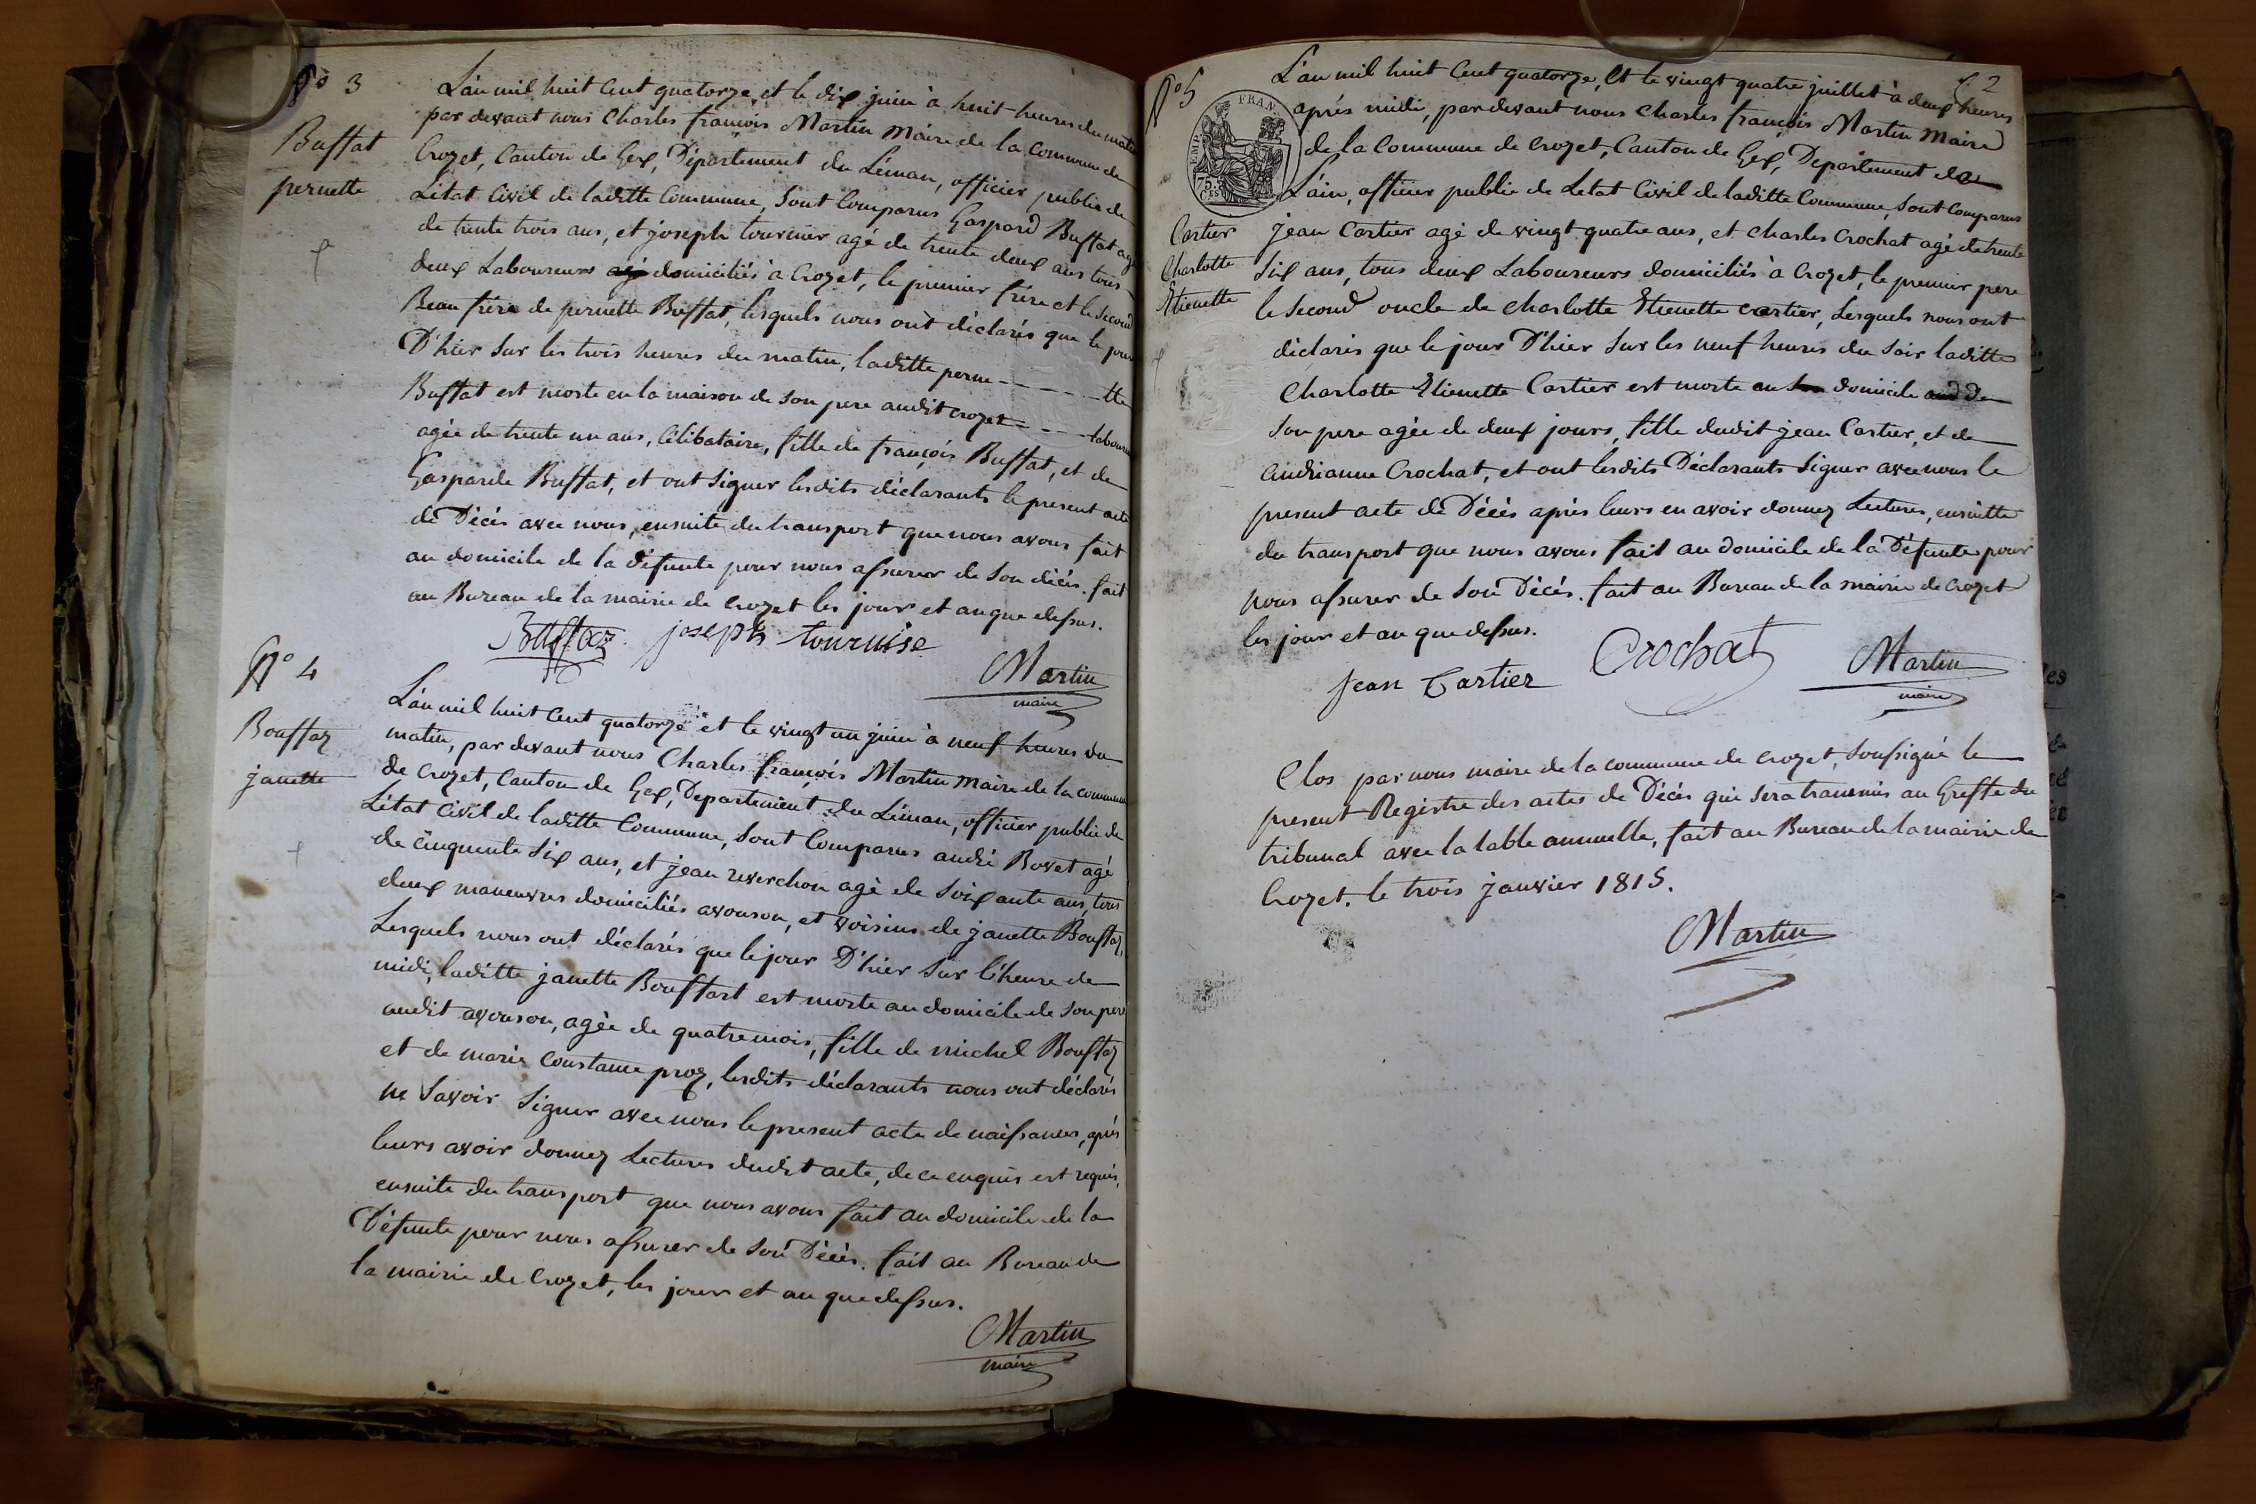 N° 3
Buffat
pernette
L'an mil huit Cent quatorze, et le dix juin à huit heures du matin
par devant nous Charles françois Martin Maire de la Commune de
Crozet, Canton de Gex, Département du Léman, officier public de
L'état Civil de laditte Commune, Sont Comparus Gaspard Buffat agé
de trente trois ans, et joseph tournier agé de trente deux ans tous
deux Laboureurs domiciliés à Crozet, le premier frére et le Second
Beau frére de pernette Buffat, lesquels nous ont déclarés que le jour
D'hier Sur les trois heures du matin, laditte perne - - - - - tte
Buffat est morte en la maison de Son pere audit crozet - - - - laboureur
agée de trente un ans, Célibataire, fille de françois Buffat, et de
Gasparde Buffat, et ont Signer lesdits déclarants le present acte
de Décés avec nous, ensuite du transport que nous avons fait
au domicile de la défunte pour nous assurer de Son décés. fait
au Bureau de la mairie de Crozet les jour et an que dessus.
Buffaz joseph tournise
Martin
maire
N° 4
Bouffaz
janette
L'an mil huit Cent quatorze et le vingt un juin à neuf heures du
matin, par devant nous Charles françois Martin Maire de la commune
de Crozet, Canton de Gex, Departement du Léman, officier public de
L'état Civil de laditte Commune, Sont Comparus andré Bovet agé
de cinquante Six ans, et jean reverchon agé de Soixante ans, tous
deux maneuvres domiciliés avouson, et voisins de janette Bouffaz,
Lesquels nous ont déclarés que le jour D'hier Sur l'heure de
midi, laditte janette Bouffart est morte au domicile de Son pere
audit avouson, agée de quatre mois, fille de michel Bouffaz
et de marie Constance proz, lesdits déclarants nous ont déclarés
ne Savoir Signer avec nous le present acte de naissances, aprés
leurs avoir donnez Lectures dudit acte, de ce enquis est requis,
ensuite du transport que nous avons fait au domicile de la
Défunte pour nous assurer de Son Décés. fait au Bureau de
la mairie de Crozet, les jour et an que dessus.
Martin
maire
2
N° 5
FRAN
75.
CES
Cartier
Charlotte
Etienette
L'an mil huit Cent quatorze, Et le vingt quatre juillet à deux heures
aprés midi, par devant nous Charles françois Martin Maire
de la Commune de Crozet, Canton de Gex, Departement de
L'ain, officier public de L'etat Civil de laditte Commune, Sont Comparus
jean Cartier agé de vingt quatre ans, et charles Crochat agé de trente
Six ans, tous deux Laboureurs domiciliés à Crozet, le premier pere
le Second oncle de charlotte Etienette cartier, Lesquels nous ont
déclarés que le jour D'hier Sur les neuf heures du Soir laditte
Charlotte Etienette Cartier est morte au domicile de
Son pere agée de deux jours, fille dudit jean Cartier, et de
andrianne Crochat, et ont lesdits Déclarants Signer avec nous le
present acte de Décés aprés leurs en avoir donnez Lectures, ensuitte
du transport que nous avons fait au domicile de la Défunte pour
nous assurer de Son Décés. fait au Bureau de la mairie de Crozet
les jour et an que dessus.
jean Cartier Crochat Martin
maire
Clos par nous maire de la commune de Crozet, Soussigné le
present Registre des actes de Décés qui sera transmis au Greffe du
tribunal avec la table annuelle, fait au Bureau de la mairie de
Crozet, le trois janvier 1815.
Martin